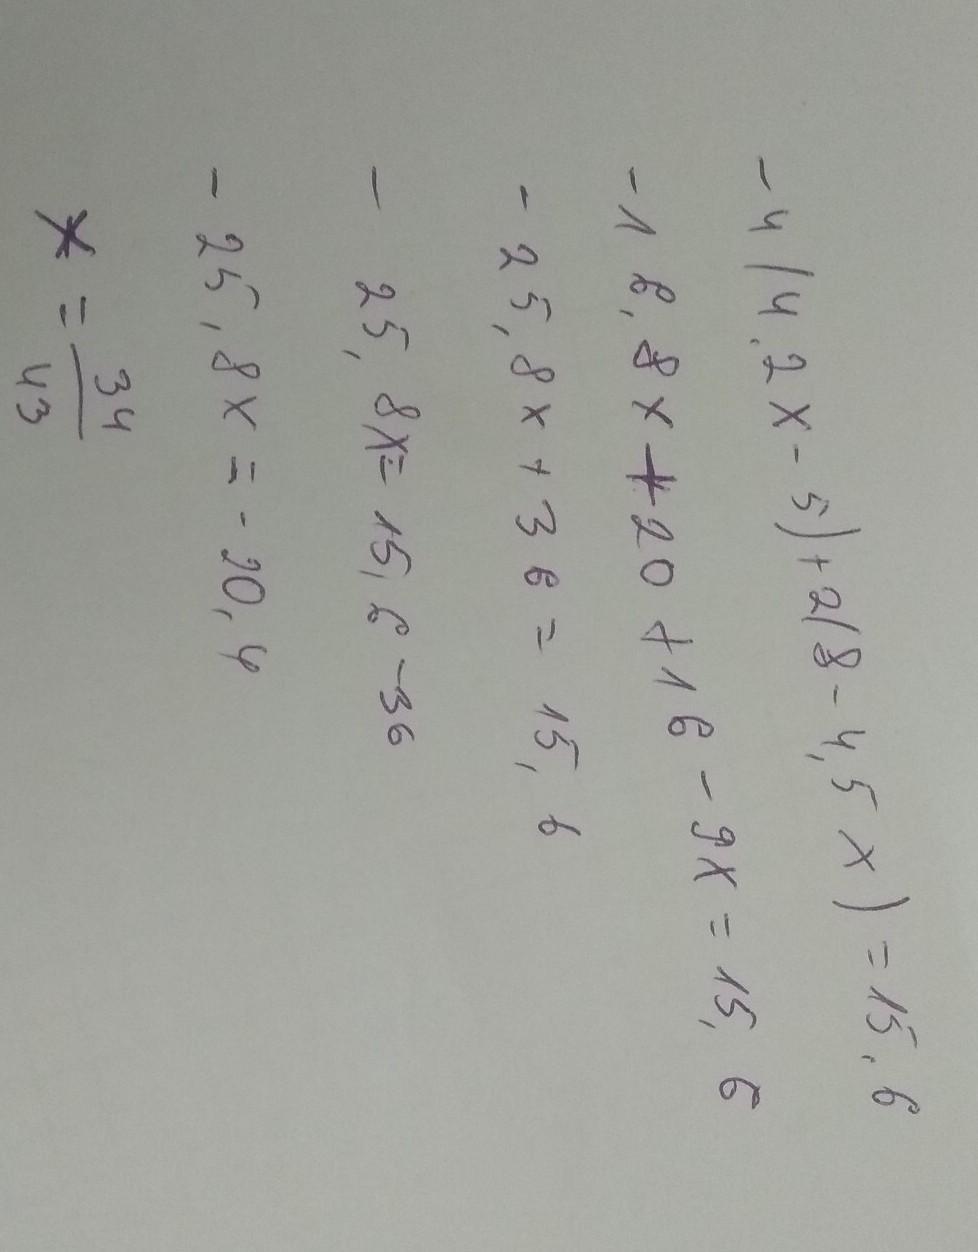 -4(4.2x-5)+2(8-4,5x)=15,6
-16,8x+20+16-9x=15,6
-25,8x+36=15,6
-25,8x=15,6-36
-25,8x=-20,4
x=34/43